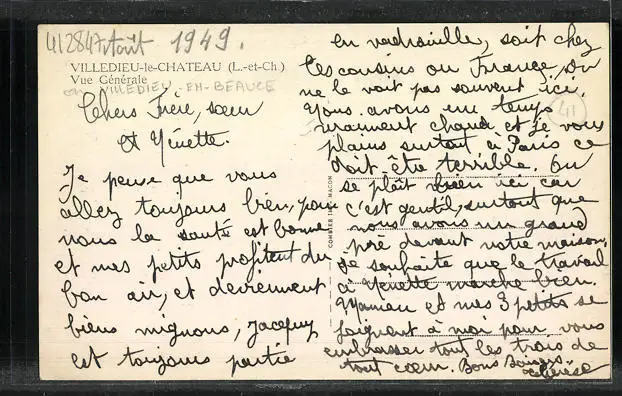 41284 Août 1949.
VILLEDIEU-le-CHATEAU (L.-et-Ch.)
Vue Générale
ou VILLEDIEU-EN-BEAUCE
Chers Frère, sœur
et Ninette.
Je pense que vous
allez toujours bien, pour
nous la santé est bonne
et mes petits profitent du
bon air, et deviennent
biens mignons, Jacquy
est toujours partie
COMBIER IMP MACON
en vadrouille, soit chez
les cousins ou France, on
ne le voit pas souvent ici.
Nous avons un temps
vraiment chaud et je vous
plains surtout à Paris ce
doit être terrible. On
se plaît bien ici, car
c'est gentil, surtout que
nous avons un grand
pré devant notre maison,
je souhaite que le travail
à Ninette marche bien.
Maman et mes 3 petits se
joignent à moi pour vous
embrasser tout les trois de
tout cœur. Bons Baisers
Thérèse
41